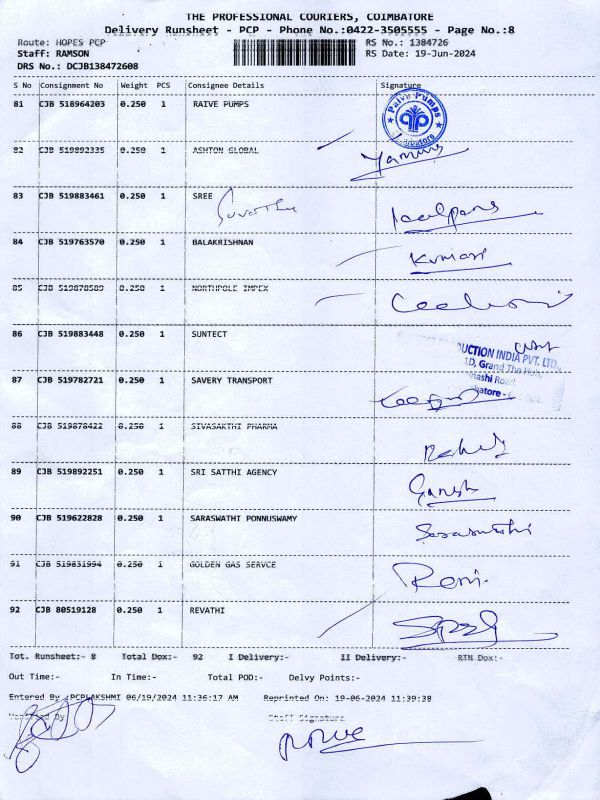 THE PROFESSIONAL COURIERS, COIMBATORE
Delivery Runsheet - PCP - Phone No.:0422-3505555 - Page No.:8
Route: HOPES PCP RS No.: 1384726
Staff: RAMSON RS Date: 19-Jun-2024
DRS No.: DCJB138472608
S No Consignment No Weight PCS Consignee Details Signature
81 CJB 518964203 0.250 1 RAIVE PUMPS
Raive Pumps
82 CJB 519892335 0.250 1 ASHTON GLOBAL
83 CJB 519883461 0.250 1 SREE
84 CJB 519763570 0.250 1 BALAKRISHNAN Kumari
85 CJB 519878589 0.250 1 NORTHPOLE IMPEX
86 CJB 519883448 0.250 1 SUNTECT
UCTION INDIA PVT. LTD.,
87 CJB 519782721 0.250 1 SAVERY TRANSPORT
88 CJB 519878422 0.250 1 SIVASAKTHI PHARMA
89 CJB 519892251 0.250 1 SRI SATTHI AGENCY Ganesh
90 CJB 519622828 0.250 1 SARASWATHI PONNUSWAMY
91 CJB 519831994 0.250 1 GOLDEN GAS SERVCE
92 CJB 80519128 0.250 1 REVATHI
Tot. Runsheet:- 8 Total Dox:- 92 I Delivery:- II Delivery:- RTN Dox:-
Out Time:- In Time:- Total POD:- Delvy Points:-
Entered By :PCPLAKSHMI 06/19/2024 11:36:17 AM Reprinted On: 19-06-2024 11:39:38
Verified By Staff Signature